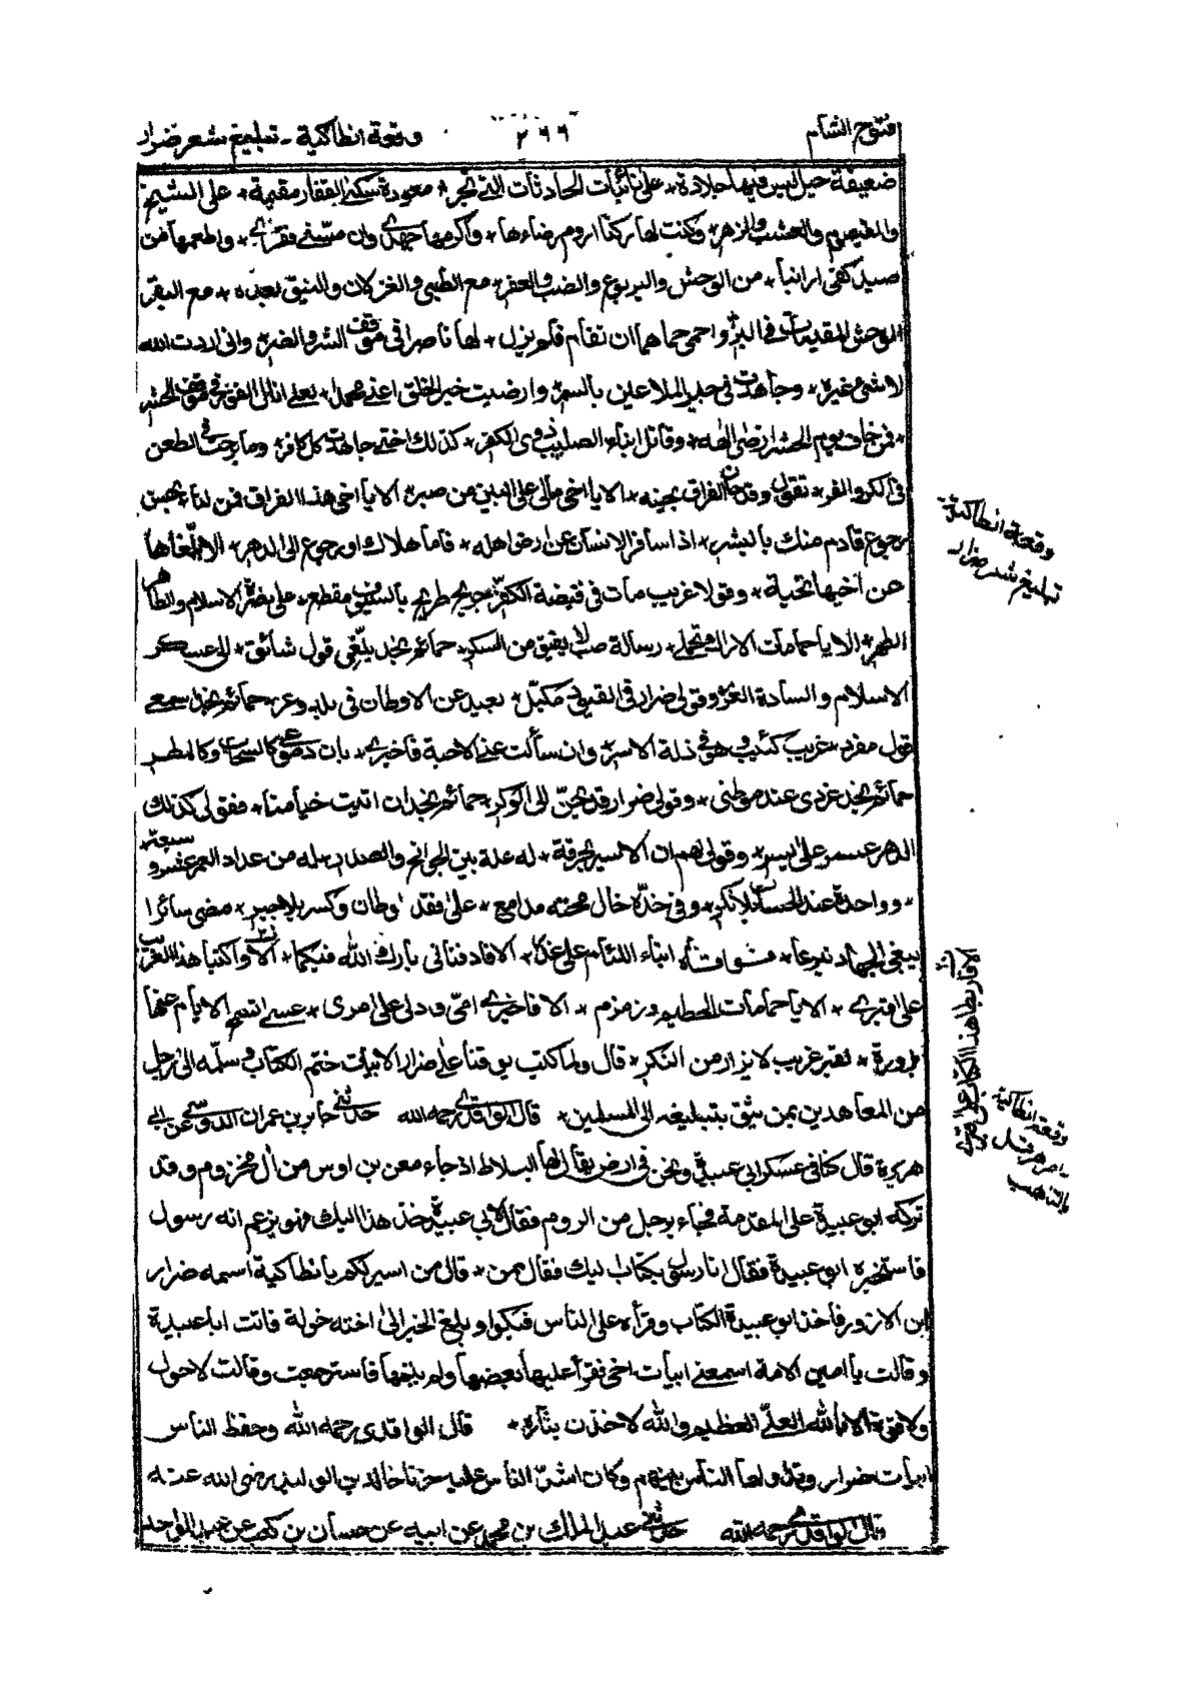 فتوح الشام
٢٦٦
وقعة انطاكية - تبليغ شعر ضرار
ضعيفة حيل ليس فيها جلادة * على نائبات الحادثات التي تجري * معودة سكنى القفار مقيمة * على الشيح
والقيصوم والعشب والزهر * وكنت لها ركنا اروم رضاءها * واكرمها جهدي وان مسني فقري * واطعمها من
صيد كفي ارانبا * من الوحش واليربوع والضب والعفر * مع الظبي والغزلان والنيق بعده * مع البقر
الوحش المقيمات في البر * واحمي حماها ان تضام فلم يزل * لها ناصرا في موقف الشر والضر * واني اردت الله
لا شيء غيره * وجاهدت في جيل الملاعين بالسمر * وارضيت خير الخلق اعني محمدا * لعلي انال الفوز في موقف الحشر
* فمن خاف يوم الحشر ارضى الهه * وقاتل ابناء الصليب ذوي الكفر * كذلك اختي جاهدت كل كافر * وما برحت في الطعن
في الكر والفر * تقول وقد حان الفراق بجينه * الا يا اخي مالي على البين من صبر * الا يا اخي هذا الفراق فمن لنا * بحسن
رجوع قادم منك بالبشر * اذا سافر الانسان عن ارض اهله * فاما هلاك او رجوع الى الدهر * الا بلغاها
عن اخيها تحية * وقولا غريب مات في قبضة الكفر * جريح طريح بالسيوف مقطع * على نصرة الاسلام والطاهر
الطهر * الا يا حمامات الاراك تحملي * رسالة صب لا يفيق من السكر * حمائم نجد بلغي قول شائق * الى عسكر
الاسلام والسادة الغر * وقولي ضرار في القيود مكبل * بعيد عن الاوطان في بلد وعر * حمائم نجد اسمعي
قول مفرد * غريب كئيب وهو في ذلة الاسر * وان سألت عني الاحبة فاخبري * بان دموعي كالسحاب وكالمطر
حمائم نجد غردي عند موطني * وقولي ضرار قد يحن الى الوكر * حمائم نجد ان اتيت خيامنا * فقولي كذلك
الدهر عسر على يسر * وقولي لهم ان الاسير بحرقة * له علة بين الجوانح والصدر * له من عداد العمر عشر وسبعة
* وواحدة عند الحساب بلا نكر * وفي خده خال محته مدامع * على فقد اوطان وكسر بلا جبر * مضى سائرا
يبغي الجهاد تبرعا * فوافاه ابناء اللئام على غدر * الا فادفناني بارك الله فيكما * الا واكتبا هذا الغريب
على قبري * الا يا حمامات الحطيم وزمزم * الا فاخبري امي ودلي على امري * عسى تسمح الايام عنها
بزورة * لقبر غريب لا يزار من النكر * قال ولما كتب يوقنا على ضرار الابيات ختم الكتاب وسلمه الى رجل
من المعاهدين بمن يثق بتبليغه الى المسلمين * قال الواقدي رحمه الله حدثني جابر بن عمران الدوسي عن ابي
هريرة قال كنا في عسكر ابي عبيدة ونحن في ارض يقال لها البلاط اذ جاء معن بن اوس من آل مخزوم وقد
تركه ابو عبيدة على المقدمة فجاء برجل من الروم فقال لابي عبيدة خذ هذا اليك فهو يزعم انه رسول
فاستخبره ابو عبيدة فقال انا رسول بكتاب اليك فقال ممن * قال من اسيركم بانطاكية اسمه ضرار
ابن الازور فاخذ ابو عبيدة الكتاب وقرأه على الناس فبكوا وبلغ الخبر الى اخته خولة فاتت ابا عبيدة
وقالت يا امين الامة اسمعني ابيات اخي فقرأ عليها بعضها ولم يتمها فاسترجعت وقالت لا حول
ولا قوة الا بالله العلي العظيم والله لاخذن بثاره * قال الواقدي رحمه الله وحفظ الناس
ابيات ضرار وتداولها الناس بينهم وكان اشد الناس عليه حزنا خالد بن الوليد رضي الله عنه
قال الواقدي رحمه الله حدثني عبد الملك بن محمد عن ابيه عن حسان بن كعب عن عبد الواحد
وقعة انطاكية
تبليغ شعر ضرار
الا فاربطا هذا الكتاب على قبري
وقعة انطاكية